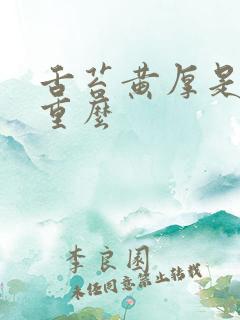 舌苔黄厚是
重麽
李良园
未经同意禁止转载